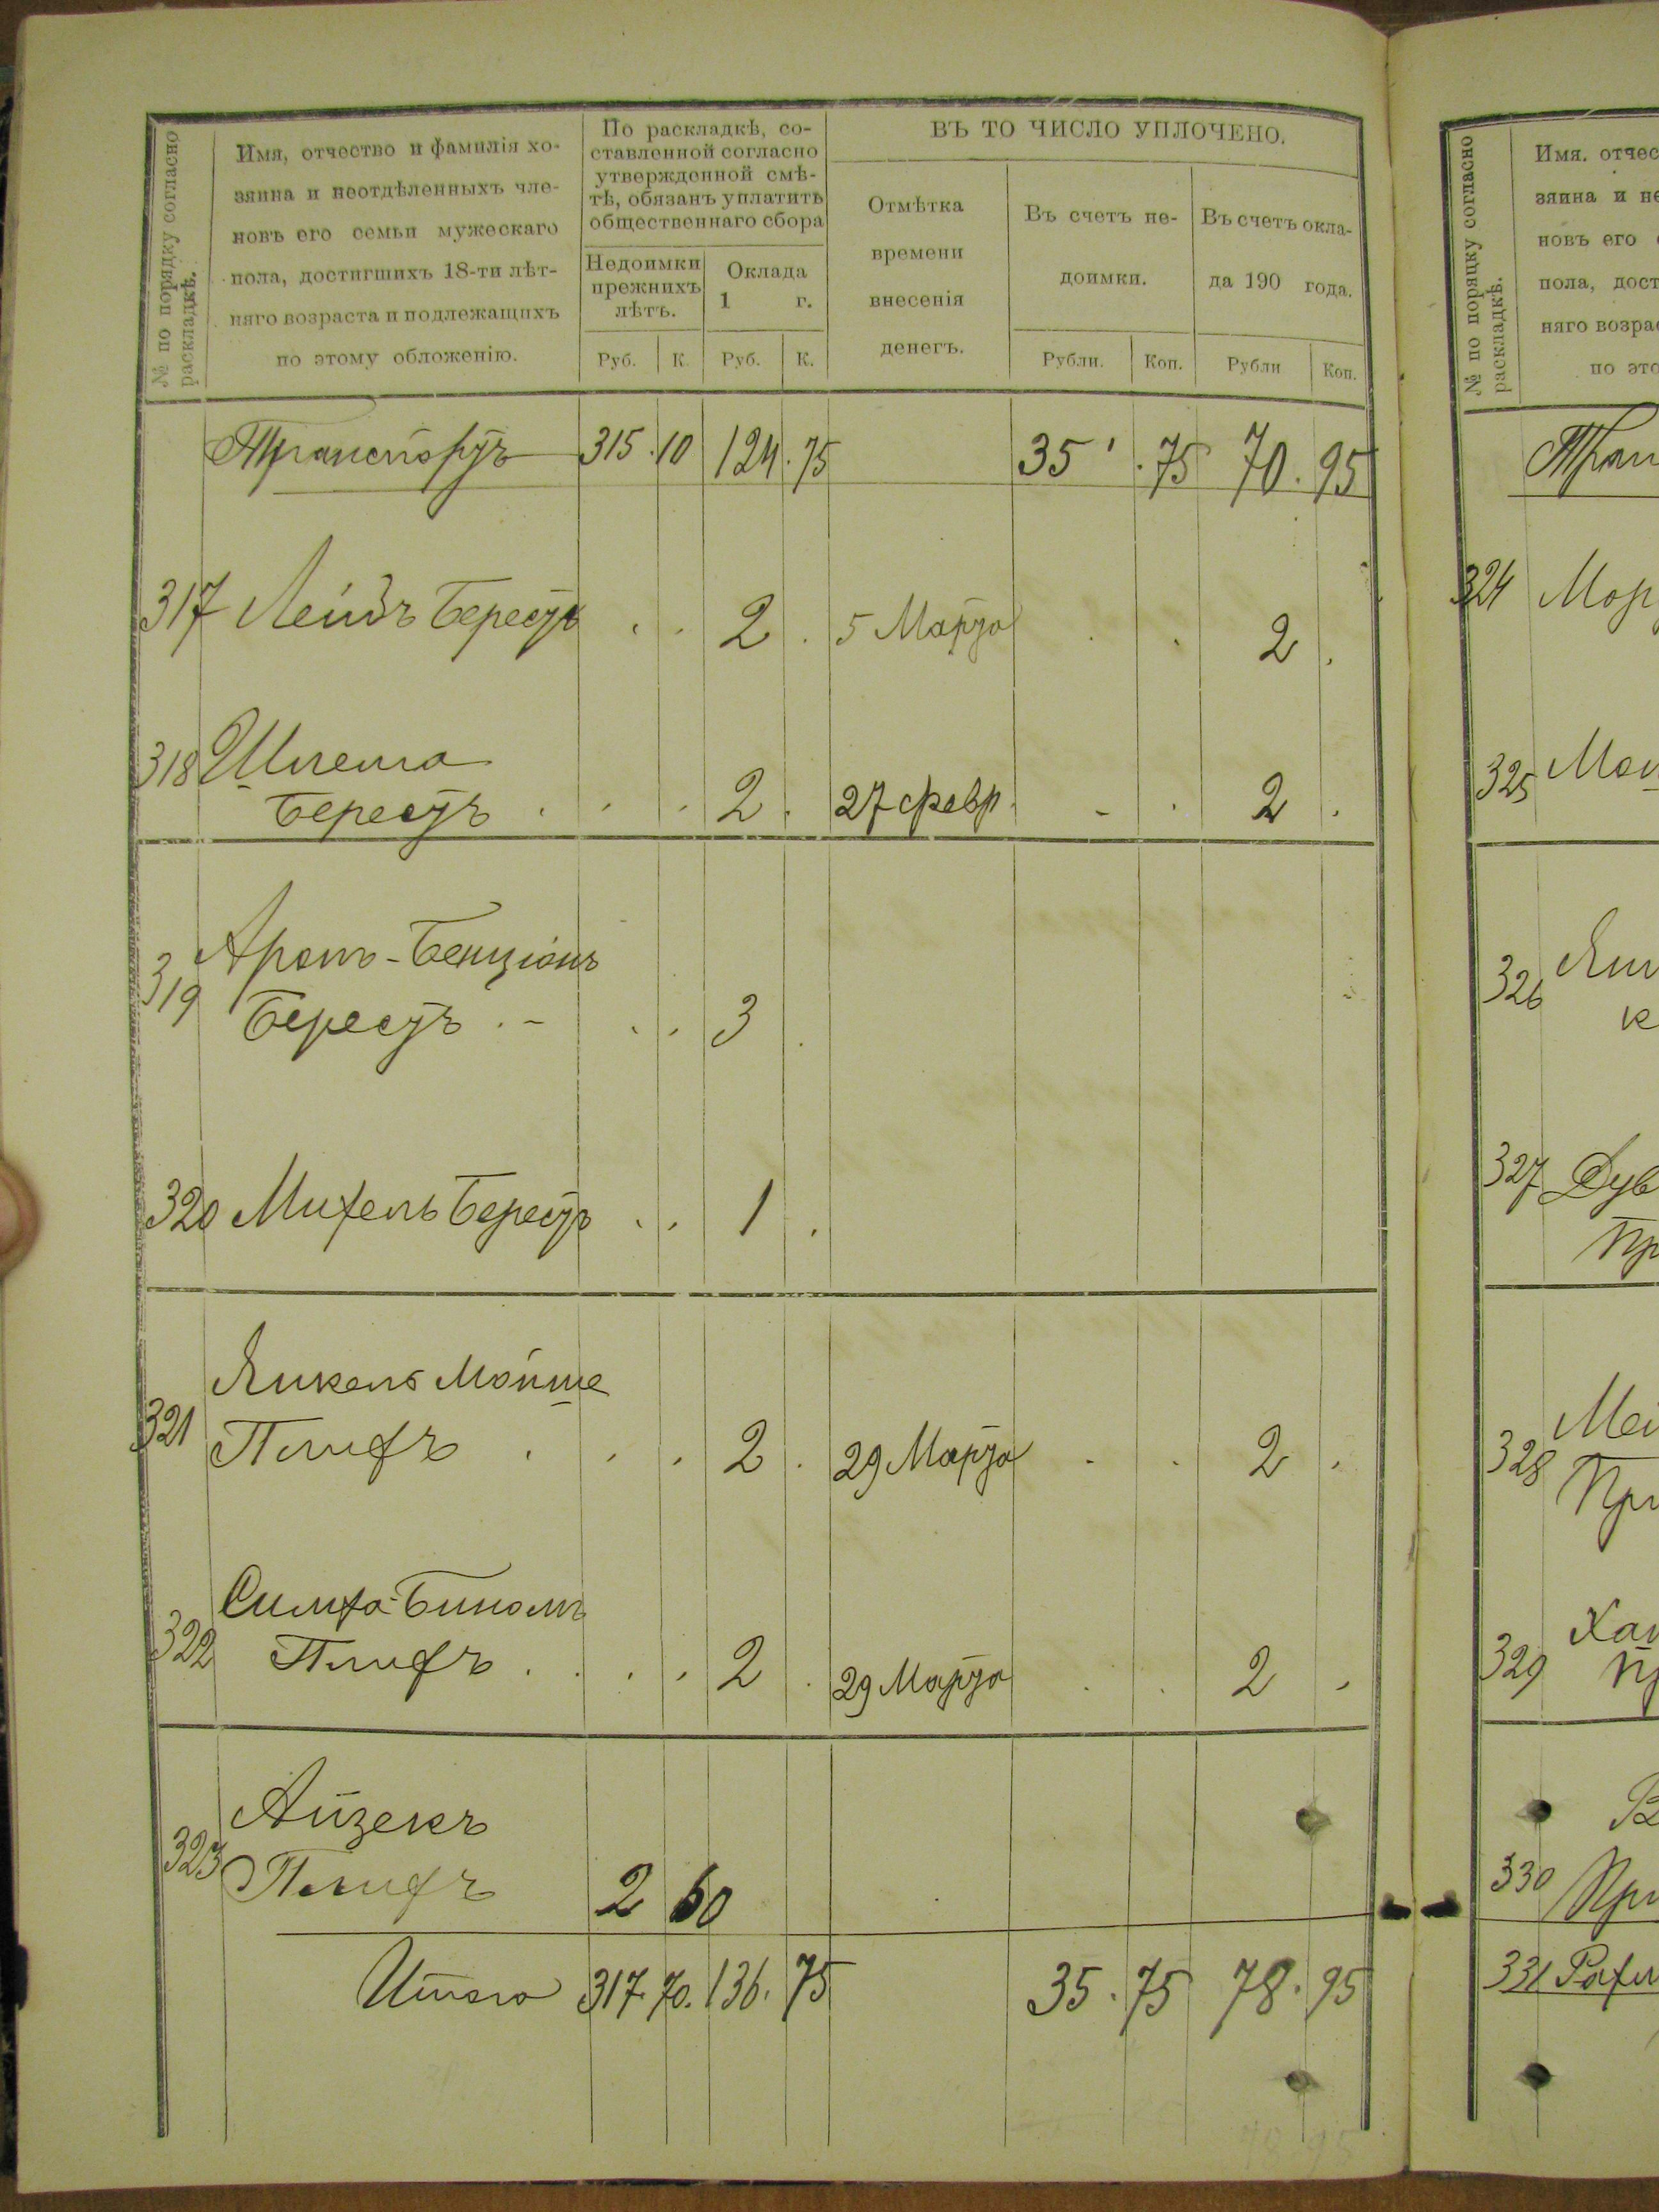 № по порядку согласно
раскладкѣ.
Имя, отчество и фамилія хо-
зяина и неотдѣленныхъ чле-
новъ его семьи мужескаго
пола, достигшихъ 18-ти лѣт-
няго возраста и подлежащихъ
по этому обложенію.
По раскладкѣ, со-
ставленной согласно
утвержденной смѣ-
тѣ, обязанъ уплатить
общественнаго сбора
Недоимки
прежнихъ
лѣтъ.
Оклада
1 г.
Руб. К. Руб. К.
ВЪ ТО ЧИСЛО УПЛОЧЕНО.
Отмѣтка
времени
внесенія
денегъ.
Въ счетъ не-
доимки.
Въ счетъ окла-
да 190 года.
Рубли. Коп. Рубли Коп.
Транспортъ 315.10 124.75 35.75 70.95
317 Лейбъ Берестъ 2 5 Марта 2
318 Шлема
Берестъ 2 27 февр. 2
319 Аронъ-Бенціонъ
Берестъ 3
320 Михель Берестъ 1
321 Янкель Мойше
Плифъ 2 29 Марта 2
322 Симха-Биномъ
Плифъ 2 29 Марта 2
323 Айзекъ
Плифъ 2 60
Итого 317.70.136.75 35.75 78.95
№ по порядку согласно
раскладкѣ.
Имя. отчес
зяина и не
новъ его
пола, дост
няго возрас
по это
Тран
324 Мор
325
326
к
327 Дув
Пр
328 Мей
При
329 Хаи
Пр
330 При
331 Рахм